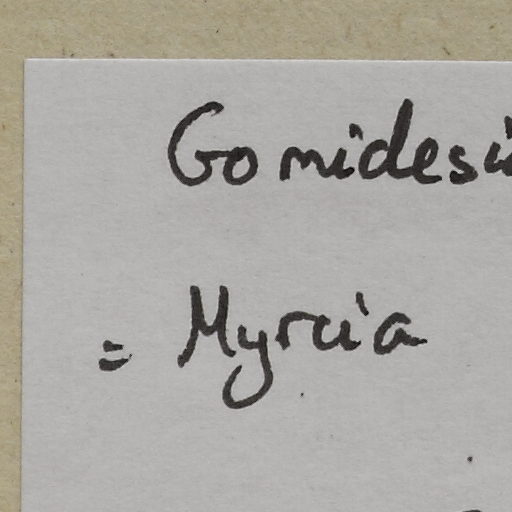 Gomidesi
= Myrcia